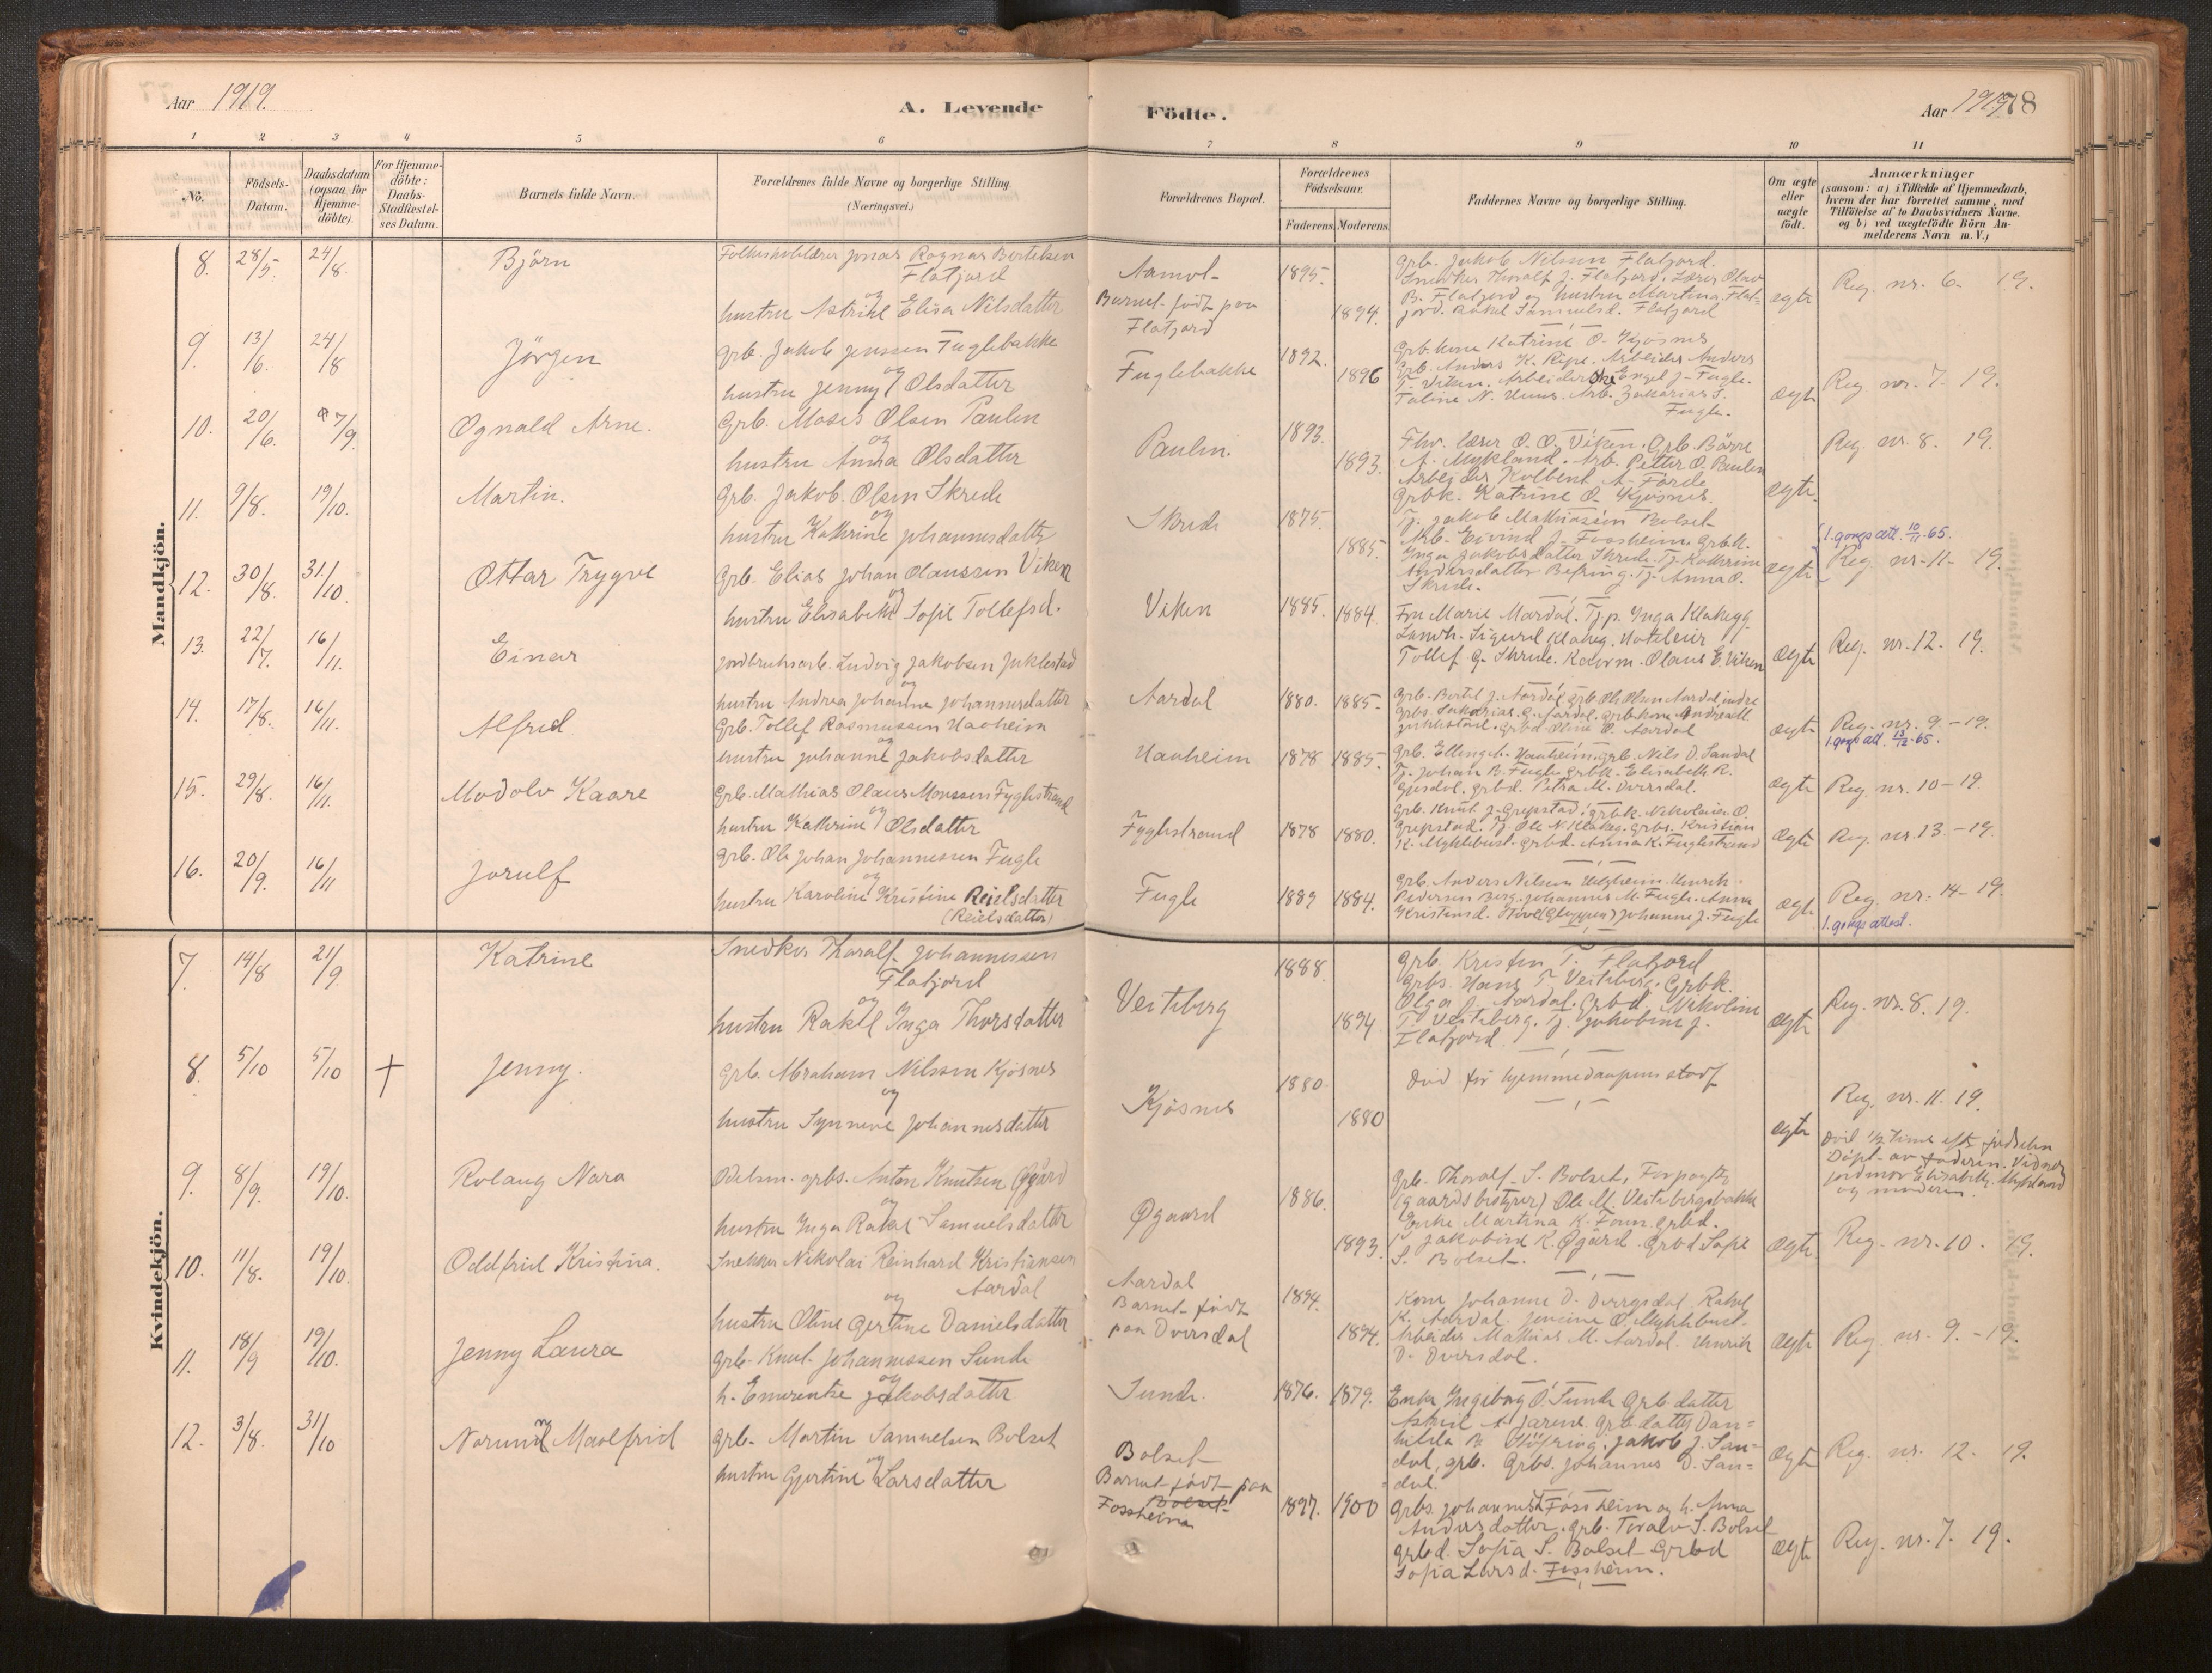 Aar 1919.
A. Levende
Födte.
Aar 1919
78
1 2 3 4 5 6 7 8 9 10 11
No.
Födsels-
Datum.
Daabsdatum
(ogsaa for
Hjemme-
döbte).
For Hjemme-
döbte:
Daabs-
Stadfæstel-
ses Datum.
Barnets fulde Navn.
Forældrenes fulde Navne og borgerlige Stilling.
(Næringsvei.)
Forældrenes Bopæl.
Forældrenes
Födselsaar.
Faderens. Moderens.
Faddernes Navne og borgerlige Stilling.
Om ægte
eller
uægte
födt.
Anmærkninger
(saasom: a) i Tilfælde af Hjemmedaab,
hvem der har forrettet samme, med
Tilföielse af to Daabsvidners Navne.
og b) ved uægtefödte Börn An-
melderens Navn m.V.)
Mandkjön.
8. 28/5. 24/8. Björn
Folkeskolelærer Jonas Ragnar Bertelsen
Flatjord
og
hustru Astrid Elisa Nilsdatter
Barnet født paa
Flatjord
1895. 1894.
Grb. Jakob Nilsen Flatjord.
Snedker Thoralf J. Flatjord. Lærer Olav
B. Flatjord og hustru Martina Flat-
jord. Rakel Samuelsd. Flatjord
egte
Reg. nr. 6. 19.
9. 13/6. 24/8 Jörgen
Grb. Jakob Jensen Fuglebakke
og
hustru Jenny Olsdatter
Fuglebakke
1892. 1896
Grb.kone Katrine O. Kjøsnes
Grb. Anders K. Ripe. Arbeider Anders
T. Viken. Arbeider Engel J. Fugle.
Taline N. Arb. Zakarias S.
Fugle.
ægte
Reg. nr. 7. 19.
10. 20/6. 7/9. Ognald Arne.
Grb. Moses Olsen Paulen
og
hustru Anna Olsdatter
Paulen.
1893. 1893.
Fhv. lærer O. O. Viken. Grb. Börre
A. Mykland. Arb. Petter O. Paulen
Arbeider Kolbent A. Förde
Grbk. Katrine O. Kjøsnes.
ægte.
Reg. nr. 8. 19.
11. 9/8. 19/10. Martin.
Grb. Jakob Olsen Skrede
og
hustru Kathrine Johannesdatter
Skrede
1875. 1885.
Tj. Jakob Mathiassen Bolset
Arb. Eivind J. Fossheim. Grbk.
Inga Jakobsdatter Skrede. Tj. Kathrine
Andersdatter Befring. Tj. Anna O.
Skrede.
ægte
1. gongs att. 10/11-65.
Reg. nr. 11- 19.
12. 30/8. 31/10. Ottar Trygve
Grb. Elias Johan Olaussen Viken
og
hustru Elisabeth Sofie Tollefsd.
Viken
1885. 1884.
Fru Marie Mardal. Tj.p. Inga Klakegg
Landh. Sigurd Klakeg. Hoteleier
Tollef G. Skrede. Kaarm. Olaus E. Viken
ægte
Reg. nr. 12. 19.
13. 22/7. 16/11. Einar
Jordbruksarb. Ludvig Jakobsen Juklestad
og
hustru Andrea Johanne Johannesdatter
Aardal
1880. 1885.
Grb. Bertel J. Aardal grb. Ole Olsen Aardal indre
Grbs. Sakarias G. Aardal. Grb.kone Andrea M.
Juklestad. grbd. Oline O. Aardal
ægte
Reg. nr. 9. - 19.
14. 17/8. 16/11. Alfred.
Grb. Tollef Rasmussen Hauheim
og
hustru Johanne Jakobsdatter
Hauheim
1878 1885.
Grb. Elling A. Hauheim. grb. Nils D. Sandal
Tj. Johan B. Fugle grbk. Elisabeth R.
Gjesdal. grbd. Petra M. Dvergsdal.
ægte
1. gongs att. 13/12-65.
Reg. nr. 10 - 19.
15. 29/8. 16/11. Modolv Kaare
Grb. Mathias Olaus Monssen Fyglestrand
og
hustru Kathrine Olsdatter
Fyglestrand
1878 1880.
Grb. Knut J. Grepstad. grbk. Nikolaia O.
Grepstad. Tj. Ole N. Klakeg. Grbs. Kristian
K. Myklebust. Grbd. Anna K. Fuglestrand
ægte
Reg. nr. 13. - 19.
16. 20/9. 16/11 Jorulf
Grb. Ole Johan Johannessen Fugle
og
hustru Karoline Kristine Reielsdatter
(Reielsdatter)
Fugle
1889 1884.
Grb. Anders Nilsen Helgheim. Henrik
Pedersen Berg. Johannes M. Fugle. Anna
Kristensd. (Gloppen) Johanne J. Fugle
ægte
Reg. nr. 14 - 19.
1. gongs attest.
Kvindekjön.
7. 14/8 21/9. Katrine
Snedker Thoralf Johannessen
Flatjord
og
hustru Rakel Inga Thorsdatter
Vesteberg
1888. 1894
Grb. Kristen T. Flatjord
Grbs. Hans T. Vesteberg. Grbk.
Olga J. Aardal. Grbd. Nikoline
T. Vesteberg. Tj. Jakobine J.
Flatjord.
ægte
Reg. nr. 8. 19.
8. 5/10 5/10 + Jenny.
Grb. Abraham Nilssen Kjøsnes
og
hustru Synneve Johannesdatter
Kjøsnes
1880. 1880
Död før hjemmedaapens stadf
ægte
Reg. nr. 11. 19.
Död 1/2 time efter födselen
Döpt av faderen. Vidner
jordmor Elisabeth Mykland
og moderen.
9. 8/9. 19/10. Rolaug Nora
Odelsm. grbs. Anton Knutsen Øgård
og
hustru Inga Rakel Samuelsdatter
Øgaard
1886. 1893.
Grb. Thoralf S. Bolset, Forpagter
(gaardsbestyrer) Ole M. Vestebergsbakke
Enke Martina K. Grbd.
Jakobine K. Øgård. Grbd Sofie
S. Bolset.
ægte
Reg. nr. 10. 19.
10. 11/8. 19/10. Oddfrid Kristina.
Snekker Nikolai Reinhard Kristiansen
Aardal
og
hustru Oline Gertine Danielsdatter
Aardal
Barnet født
paa Dvergsdal
1894. 1894.
Kone Johanne D. Dvergsdal Rakel
K. Aardal. Jensine O. Myklebust.
Arbeider Mathias M. Aardal. Henrik
D. Dvergsdal.
ægte
Reg. nr. 9. - 19.
11. 18/9 19/10. Jenny Laura
Grb. Knut Johannessen Sunde
og
h. Emerentse Jakobsdatter
Sunde.
1876. 1879.
Enke Ingeborg O. Sunde Grb.datter
Astrid A. Grb.datter Dan=
hilda A. Støfring. Jakob J. San=
dal, grb. Grbs. Johannes D. San=
dal.
ægte
Reg. nr. 12. 19.
12. 3/8. 31/10 Norunn Maalfrid
Grb. Martin Samuelsen Bolset
og
hustru Gjertine Larsdatter
Bolset
Barnet født paa
Bolset
Fossheim
1897. 1900
Grbs. Johannes Fossheim og h. Anna
Andersdatter. Grb. Toralv S. Bolset
grbd. Sofia S. Bolset Grbd
Sofia Larsd. Fossheim.
ægte
Reg. nr. 7. 19.